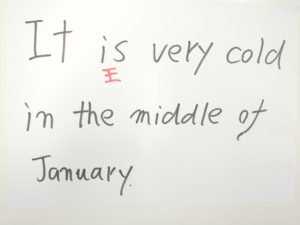 It is very cold
王
in the middle of
January.